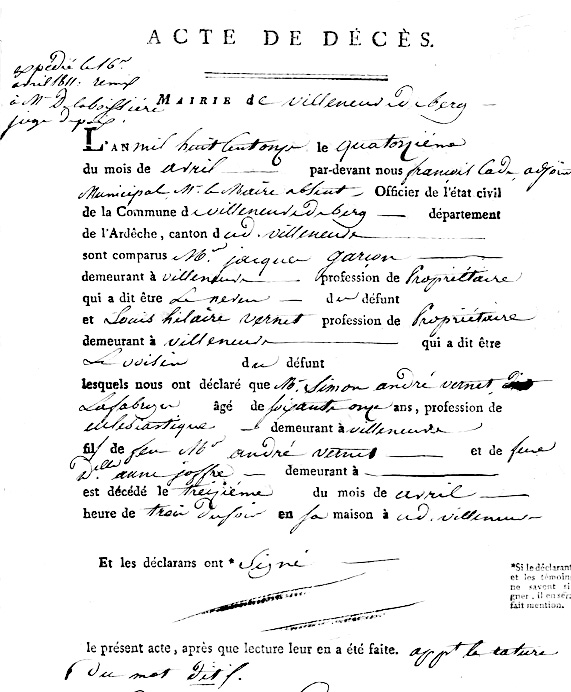 ACTE DE DÉCÈS.
expédié le 16
avril 1811. remis
à Mr Delaboissière
juge de paix.
MAIRIE de villeneuve De berg
L'AN mil huit cent onze le quatorzième
du mois de avril par-devant nous françois Lade, adjoint
Municipal Mr le Maire absent Officier de l'état civil
de la Commune d villeneuve De berg département
de l'Ardèche, canton dud. villeneuve
sont comparus Mr jacques garion
demeurant à villeneuve profession de Propriétaire
qui a dit être Le neveu du défunt
et Louis hilaire vernet profession de Propriétaire
demeurant à villeneuve qui a dit être
Le voisin du défunt
lesquels nous ont déclaré que Mr Simon andré vernet,
âgé de soixante onze ans, profession de
ecclesiastique demeurant à villeneuve
fils de feu Mr andré vernet et de feue
Dlle anne joffre demeurant à
est décédé le treizième du mois de avril
heure de trois du soir en sa maison à ud. villeneuve
Et les déclarans ont * Signé
*Si le déclarant
et les témoins
ne savent si-
gner, il en ser
fait mention.
le présent acte, après que lecture leur en a été faite. appé la rature
Du mot Dit /.